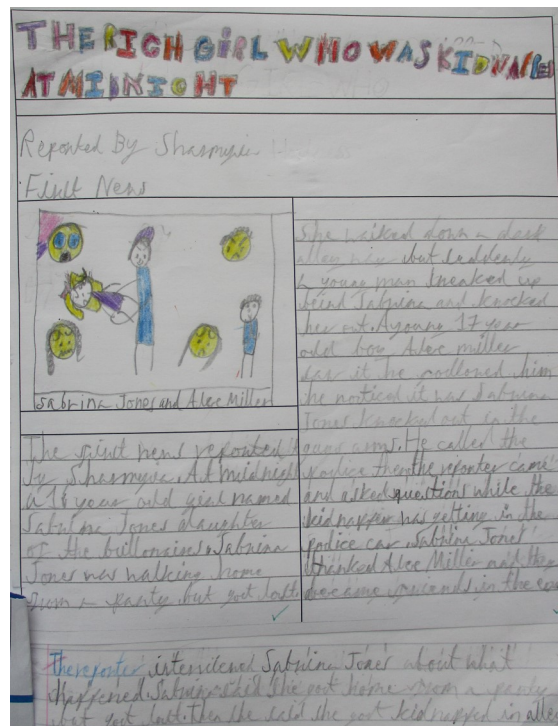 THE RICH GIRL WHO WAS KIDNAPPED
AT MIDNIGHT
Reported By Sharmyia
First News
Sabrina Jones and Alec Miller
The first news reported
by Sharmyia. At midnight
a 16 year old girl named
Sabrina Jones daughter
of the billonaires. Sabrina
Jones was walking home
from a party but got lost.
She walked down a dark
alley way but suddenly
a young man sneaked up
beind Sabrina and knocked
her out. A young 17 year
old boy Alec miller
saw it he followed him
he noticed it was Sabrina
Jones knocked out in the
arms. He called the
police then the reporter came
and asked questions while the
kidnapper was getting in the
police car. Sabrina Jones
thanked Alec Miller and they
became friends in the end
The reporter interviewed Sabrina Jones about what
happened. Sabrina said she got home from a party
but got lost. Then she said she got kidnapped in